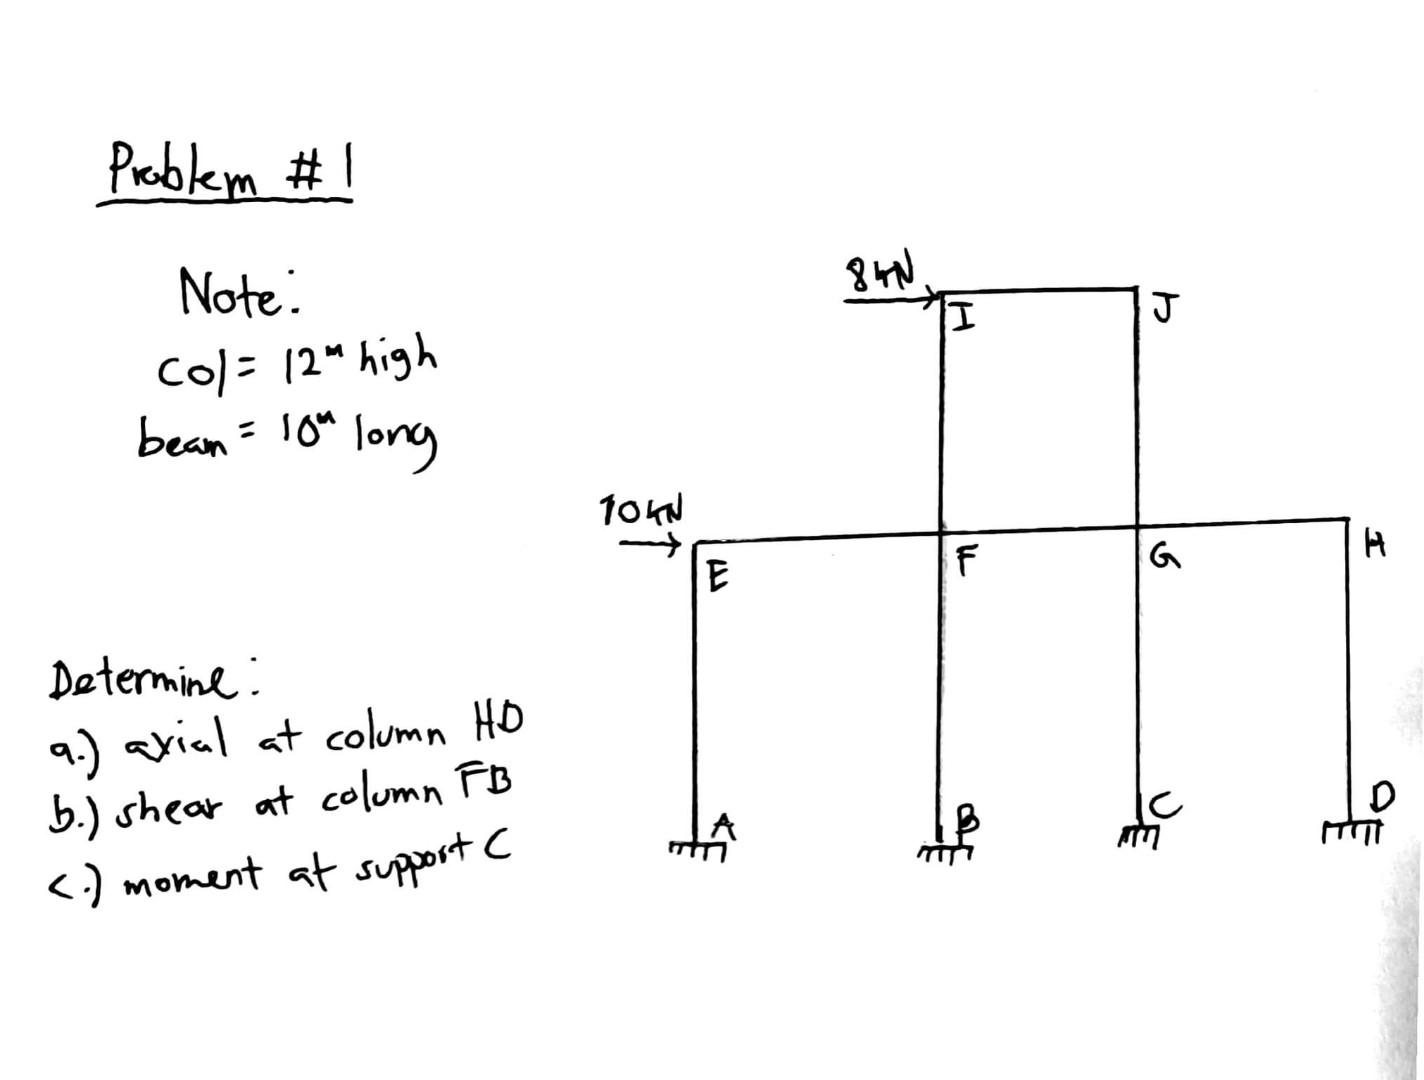 Problem #1
Note:
Col = 12m high
beam = 10m long
8 kN
I
J
10 kN
E
F
G
H
Determine:
a.) axial at column HD
b.) shear at column FB
c.) moment at support C
A
B
C
D